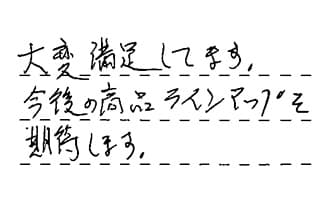 大変満足してます。
今後の商品ラインアップを
期待します。